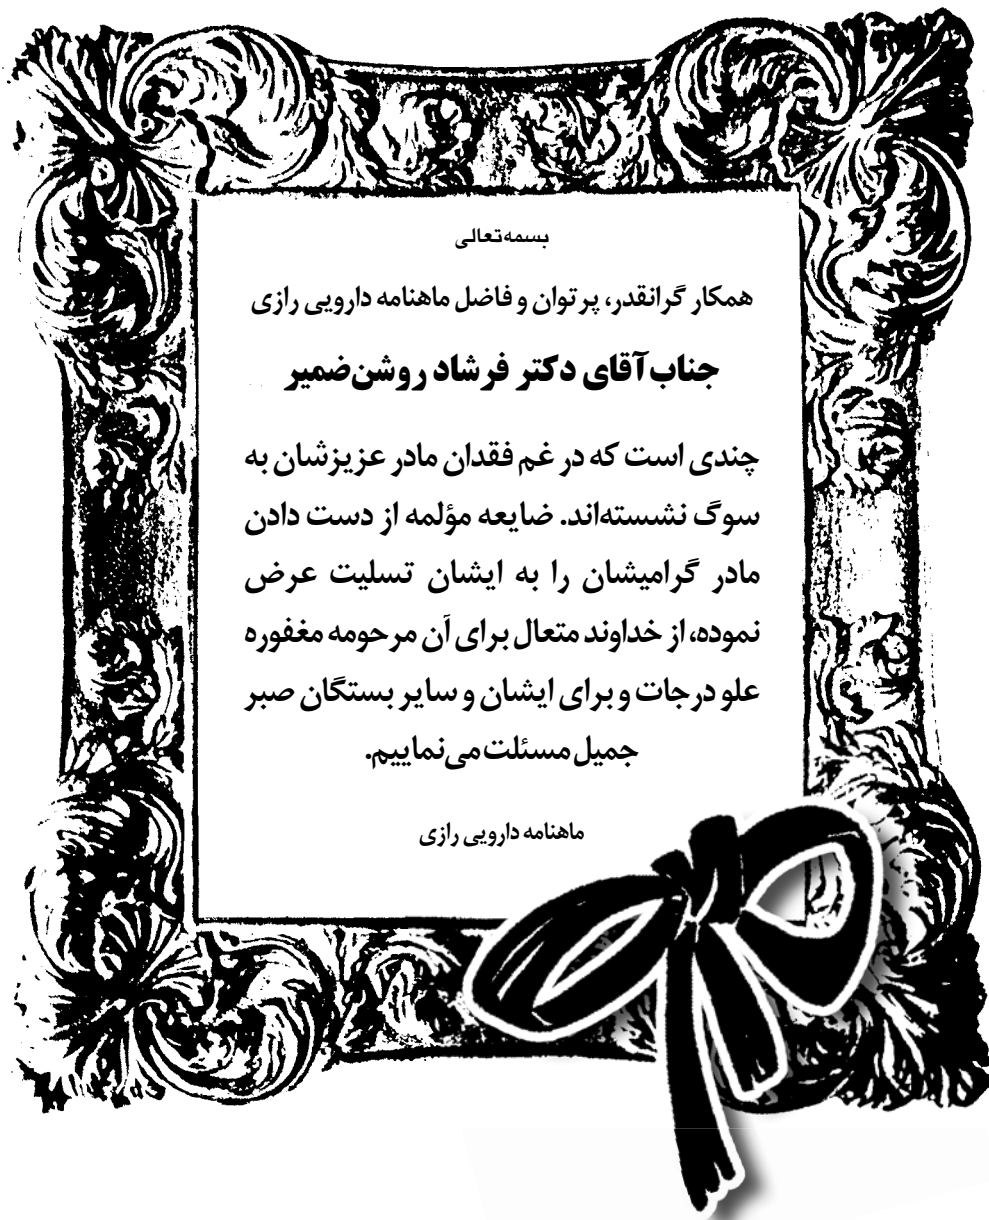 بسمه‌تعالی
همکار گرانقدر، پرتوان و فاضل ماهنامه دارویی رازی
جناب‌آقای دکتر فرشاد روشن‌ضمیر
چندی است که در غم فقدان مادر عزیزشان به
سوگ نشسته‌اند. ضایعه مؤلمه از دست دادن
مادر گرامیشان را به ایشان تسلیت عرض
نموده، از خداوند متعال برای آن مرحومه مغفوره
علو درجات و برای ایشان و سایر بستگان صبر
جمیل مسئلت می‌نماییم.
ماهنامه دارویی رازی